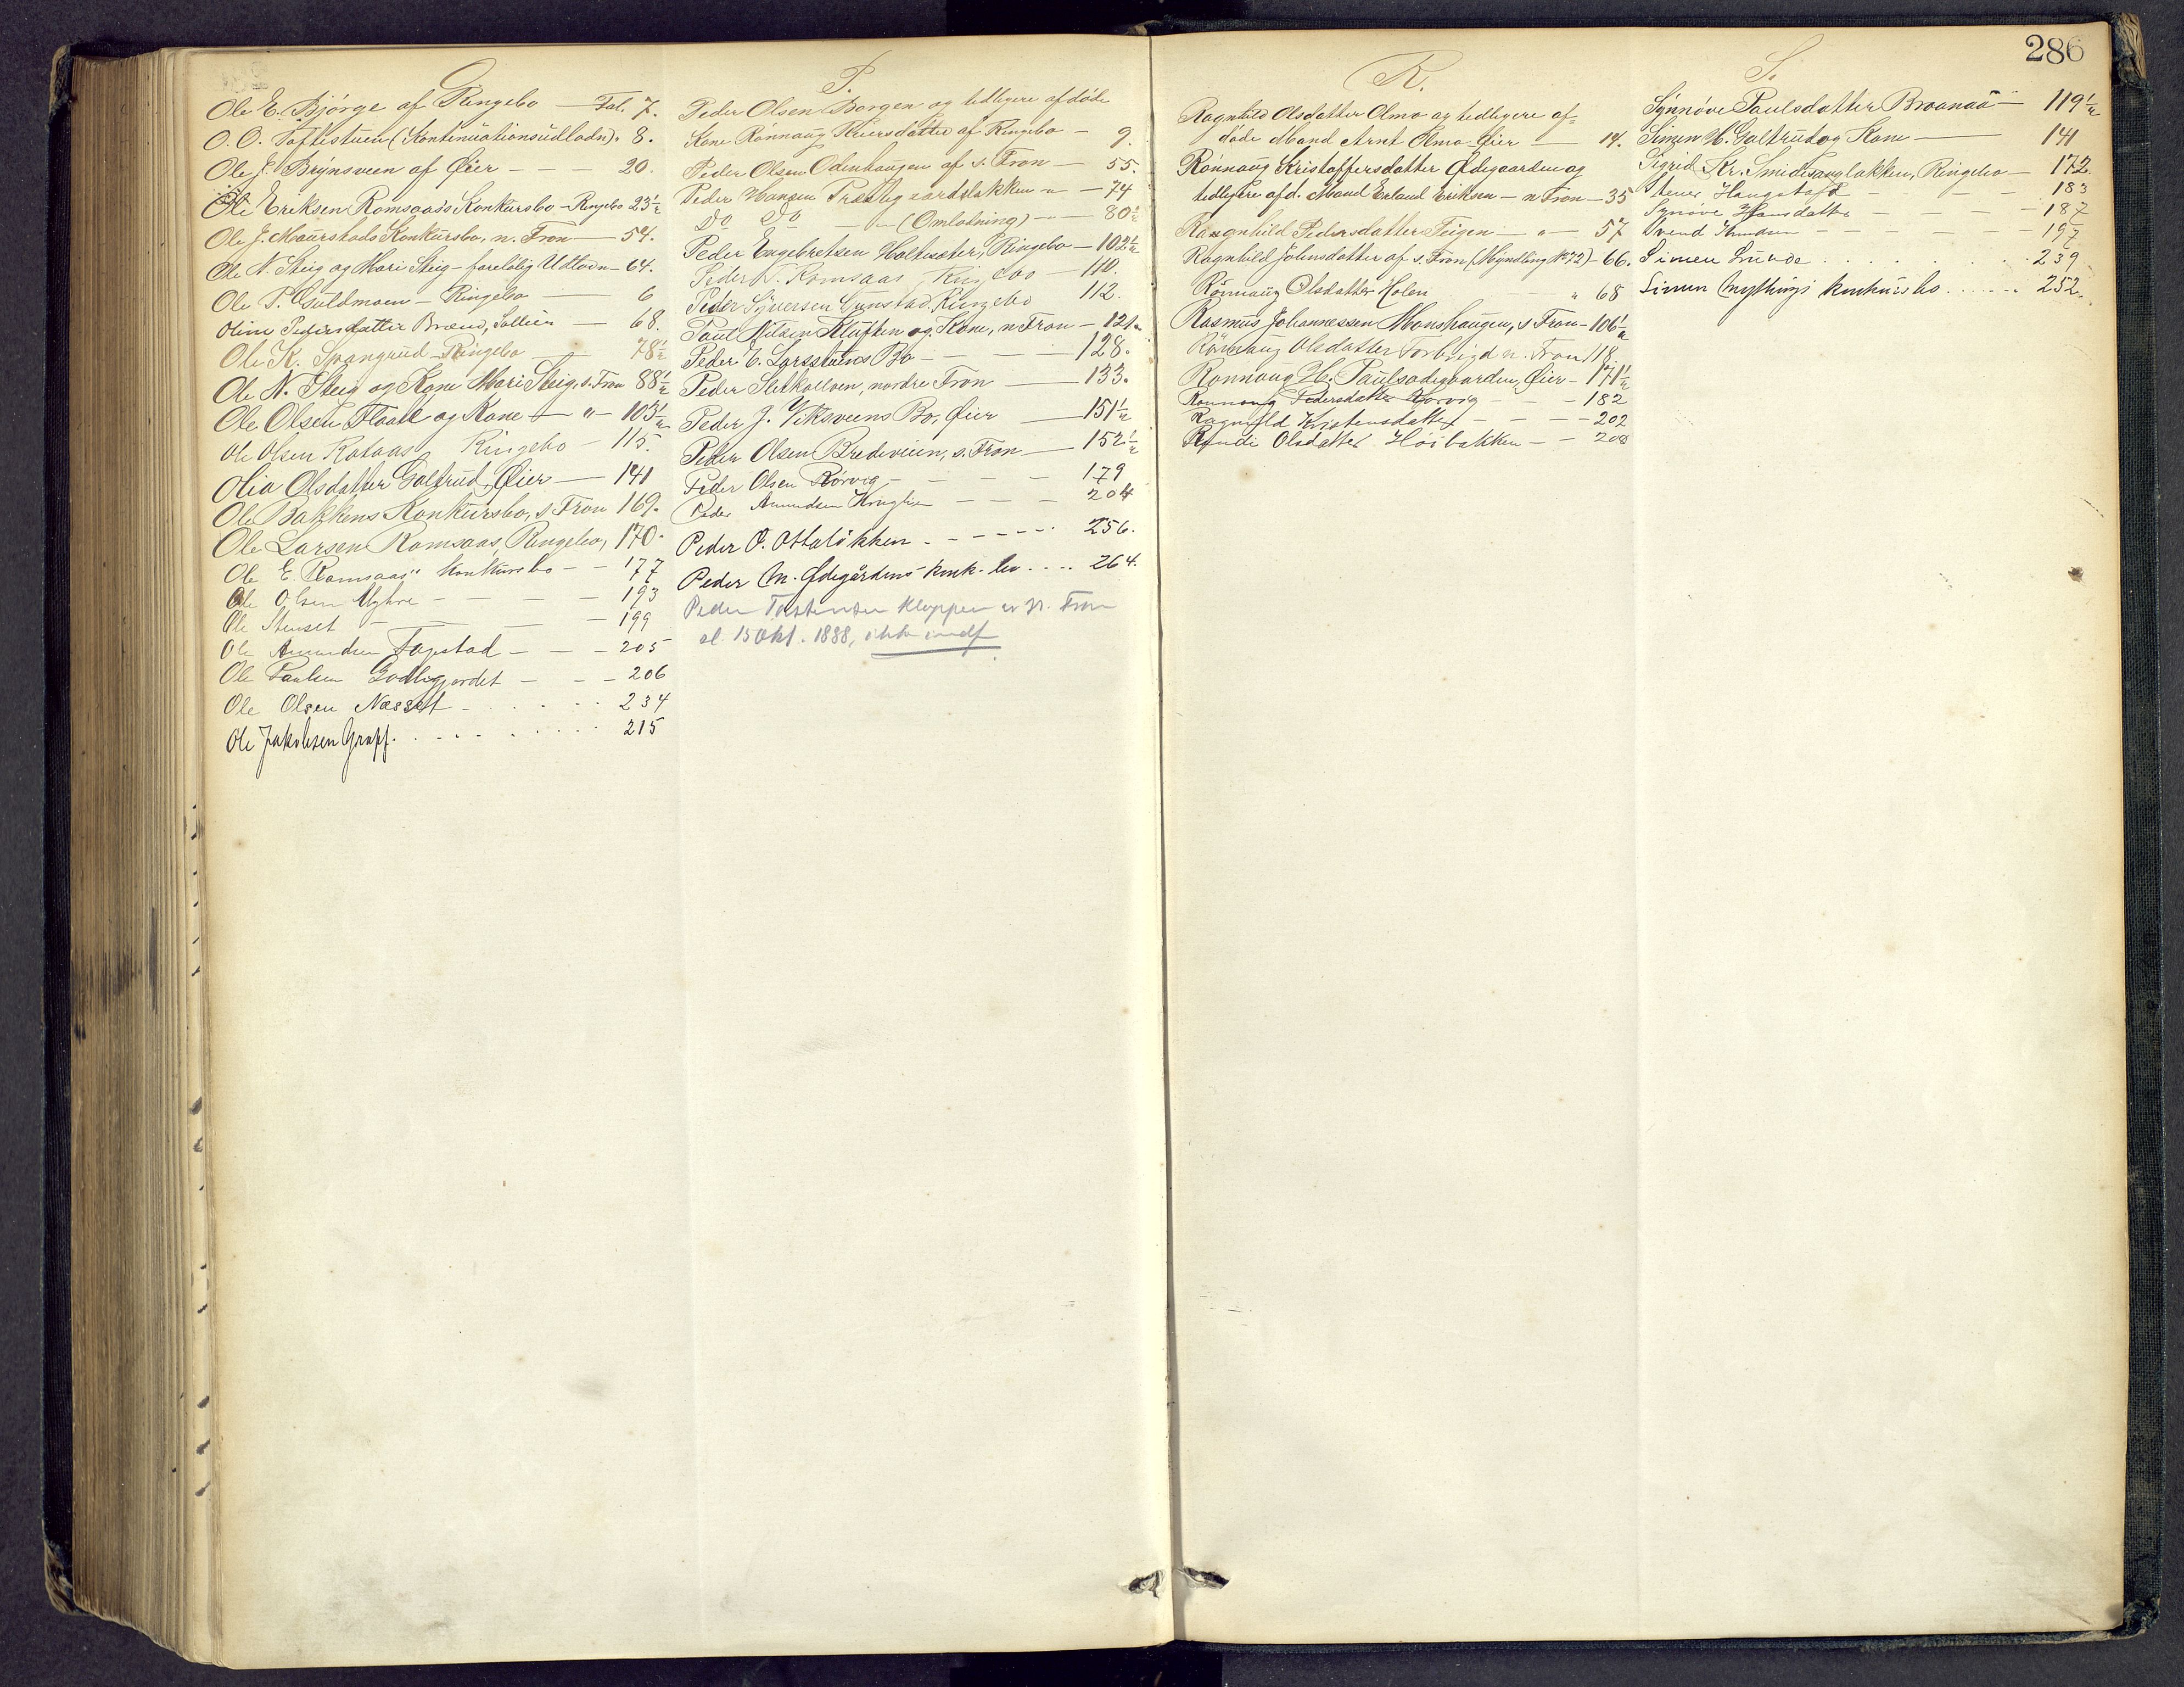 286
O
Ole E. Bjørge af Ringebo — Fol. 7.
O. O. Toftestuen (Kontinuationsudlodn). 8.
Ole J. Brynsveen af Øier — — — 20.
Ole Eriksen Romsaas's Konkursbo — Ringebo 23½
Ole J. Maurstads Konkursbo, n. Fron — 54.
Ole N. Steig og Mari Steig — foreløbig Udlodn — 64.
Ole P. Guldmoen — Ringebo — 6
Oline Pedersdatter Brænd, Sollien — 68.
Ole K. Svangrud — Ringebo — 78½
Ole N. Steig og Kone Mari Steig, s. Fron 88½
Ole Olsen Flaate og Kone — " — 103½
Ole Olsen Kolaas Ringebo — 115.
Olia Olsdatter Galtrud, Øier — 141
Ole Bakkens Konkursbo, s Fron 169.
Ole Larsen Romsaas, Ringebo, 170.
Ole E. Romsaas' Konkursbo — — 177
Ole Olsen Myhre — — — — 193
Ole Stenset — — — — 199
Ole Amundsen Fagstad — — — 205
Ole Paulsen Godligjordet — — — 206
Ole Olsen Næsset — . . . . . 234
Ole Jakobsen Graff. . . . . . . . . 215
P.
Peder Olsen Borgen og tidligere afdøde
Kone Rønnaug Reiersdatter af Ringebo — 9.
Peder Olsen Odenhaugen af s. Fron — 55.
Peder Hansen Præstegaardsbakken — " — 74
Do Do — " — (Omlodning) — 80½
Peder Engebretsen Holtesæter, Ringebo — 102½
Peder N. Romsaas Ringebo — 110.
Peder Syversen Gunstad, Ringebo 112.
Paul Nilsen Kluften og Kone, n Fron — 121.
Peder E. Larsstuens Bo — — — — 128.
Peder Sletkolloen, nordre Fron — 133.
Peder J. Viksveens Bo, Øier — 151½
Peder Olsen Bredeveien, s. Fron — 152½
Peder Olsen Rørvig — — — — 179
Peder Amundsen — — — 204
Peder O. Ottaløkken . - - - - - . 256.
Peder M. Ødegårdens konk. bo . . . . 264.
Peder Torstensen Kloppen av N. Fron
15 Okt. 1888, ikke indf
R.
Ragnhild Olsdatter Olmo og tidligere af-
døde Mand Arnt Olmo — Øier — 14.
Rønnaug Kristoffersdatter Ødegaarden og
tidligere afd. Mand Erland Eriksen — n Fron — 35
Raagnhild Pedersdatter Teigen — " — 57
Ragnhild Johnsdatter af s. Fron (Myndling No 72) — 66.
Rønnaug Olsdatter Holen " 68
Rasmus Johannessen Monshaugen, s Fron — 106½
Rønnaug Olsdatter Forbrigd n. Fron 118.
Rønnaug H. Paulsødegaarden, Øier — 171½
Rønnaug Pedersdatter Rørvig — — — 182
Ragnhild Kristensdatter — — — — 202
Randi Olsdatter Høibakken — — 208
S.
Synnøve Paulsdatter Broanaa — 119½
Simen H. Galtrud og Kone — 141
Sigrid Kr. Smidesangbakken, Ringebo — 172.
Stener Haugstad — — — — 183
Synøve Hansdatter — — — — 187
Svend Amundsen — — — — 197
Simen Lunde . . . . . . . 239
Simen Mytings konkursbo . . . . . . 252.